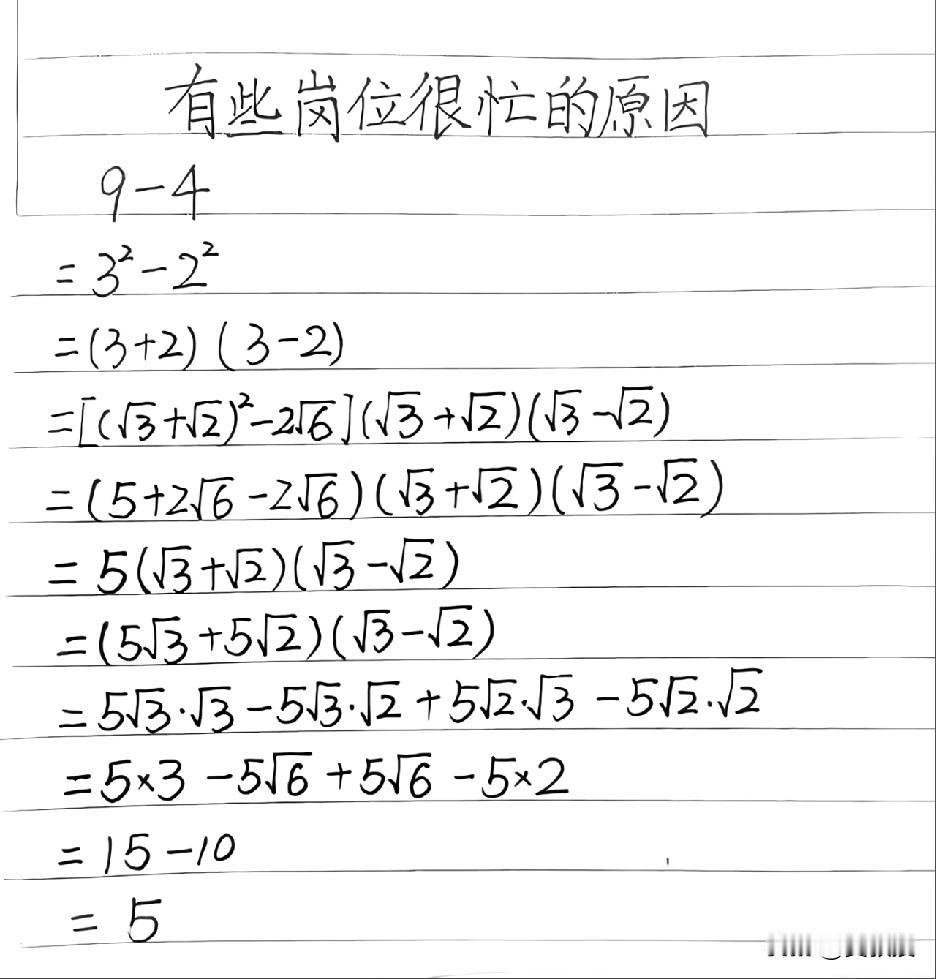 有些岗位很忙的原因
9-4
=3²-2²
=(3+2)(3-2)
=[(√3+√2)²-2√6](√3+√2)(√3-√2)
=(5+2√6-2√6)(√3+√2)(√3-√2)
=5(√3+√2)(√3-√2)
=(5√3+5√2)(√3-√2)
=5√3·√3-5√3·√2+5√2·√3-5√2·√2
=5×3-5√6+5√6-5×2
=15-10
=5